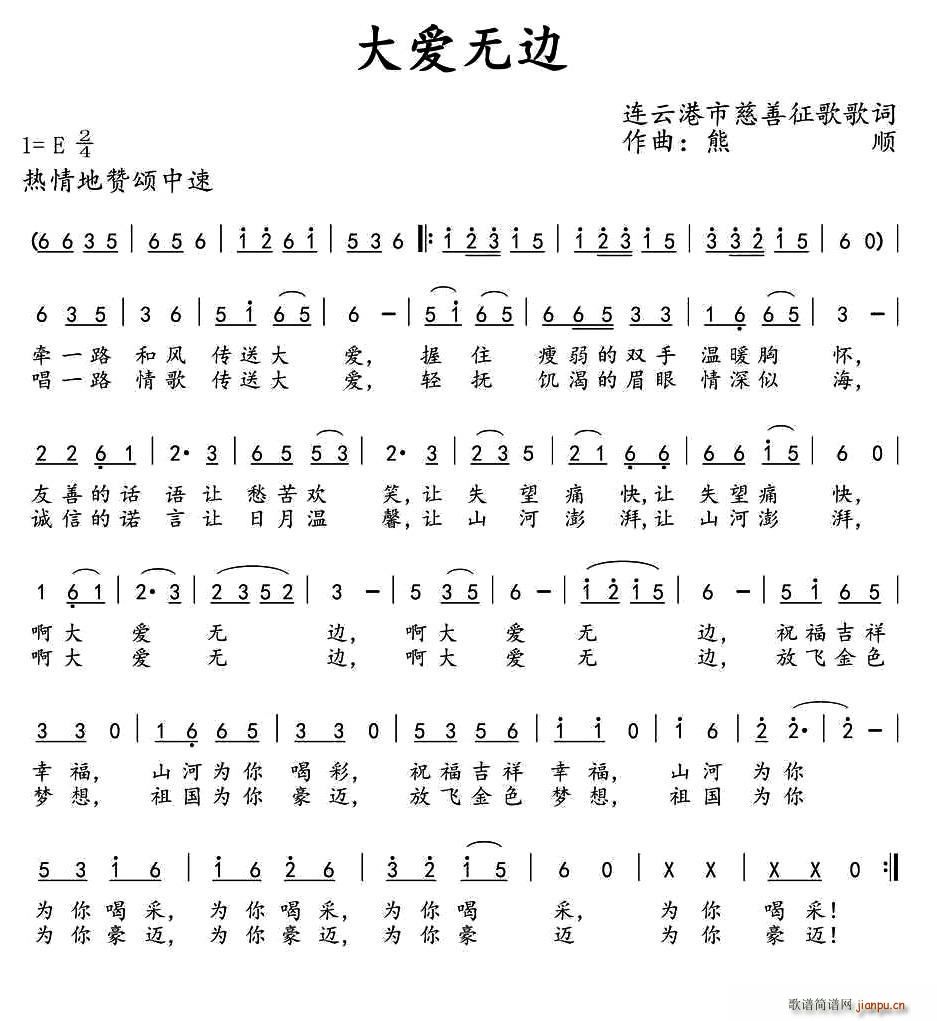 大爱无边
连云港市慈善征歌歌词
1= E 2/4
作曲：熊 顺
热情地赞颂中速
(6 6 3 5 | 6 5 6 | i 2 6 i | 5 3 6 ‖: i 2 3 i 5 | i 2 3 i 5 | 3 3 2 i 5 | 6 0) |
6 3 5 | 3 6 | 5 i 6 5 | 6 - | 5 i 6 5 | 6 6 5 3 3 | 1 6 6 5 | 3 - |
牵一路 和风 传送大 爱, 握 住 瘦弱的双手 温暖胸 怀,
唱一路 情歌 传送大 爱, 轻 抚 饥渴的眉眼 情深似 海,
2 2 6 1 | 2· 3 | 6 5 5 3 | 2· 3 | 2 3 5 | 2 1 6 6 | 6 6 i 5 | 6 0 |
友善的话 语让 愁苦欢 笑,让 失 望 痛 快,让 失望痛 快,
诚信的诺 言让 日月温 馨,让 山 河 澎 湃,让 山河澎 湃,
1 6 1 | 2· 3 | 2 3 5 2 | 3 - | 5 3 5 | 6 - | i 2 i 5 | 6 - | 5 i 6 5 |
啊大 爱 无 边, 啊大 爱 无 边, 祝福吉祥
啊大 爱 无 边, 啊大 爱 无 边, 放飞金色
3 3 0 | 1 6 6 5 | 3 3 0 | 5 3 5 6 | i i 0 | i 6 | 2 2· | 2 - |
幸福, 山河为你 喝彩, 祝福吉祥 幸福, 山河 为你
梦想, 祖国为你 豪迈, 放飞金色 梦想, 祖国 为你
5 3 i 6 | i 6 2 6 | 3 2 i 5 | 6 0 | X X | X X 0 :‖
为你喝采, 为你喝采, 为你喝 采, 为你 喝采!
为你豪迈, 为你豪迈, 为你豪 迈 为你 豪迈!
歌谱简谱网 jianpu.cn